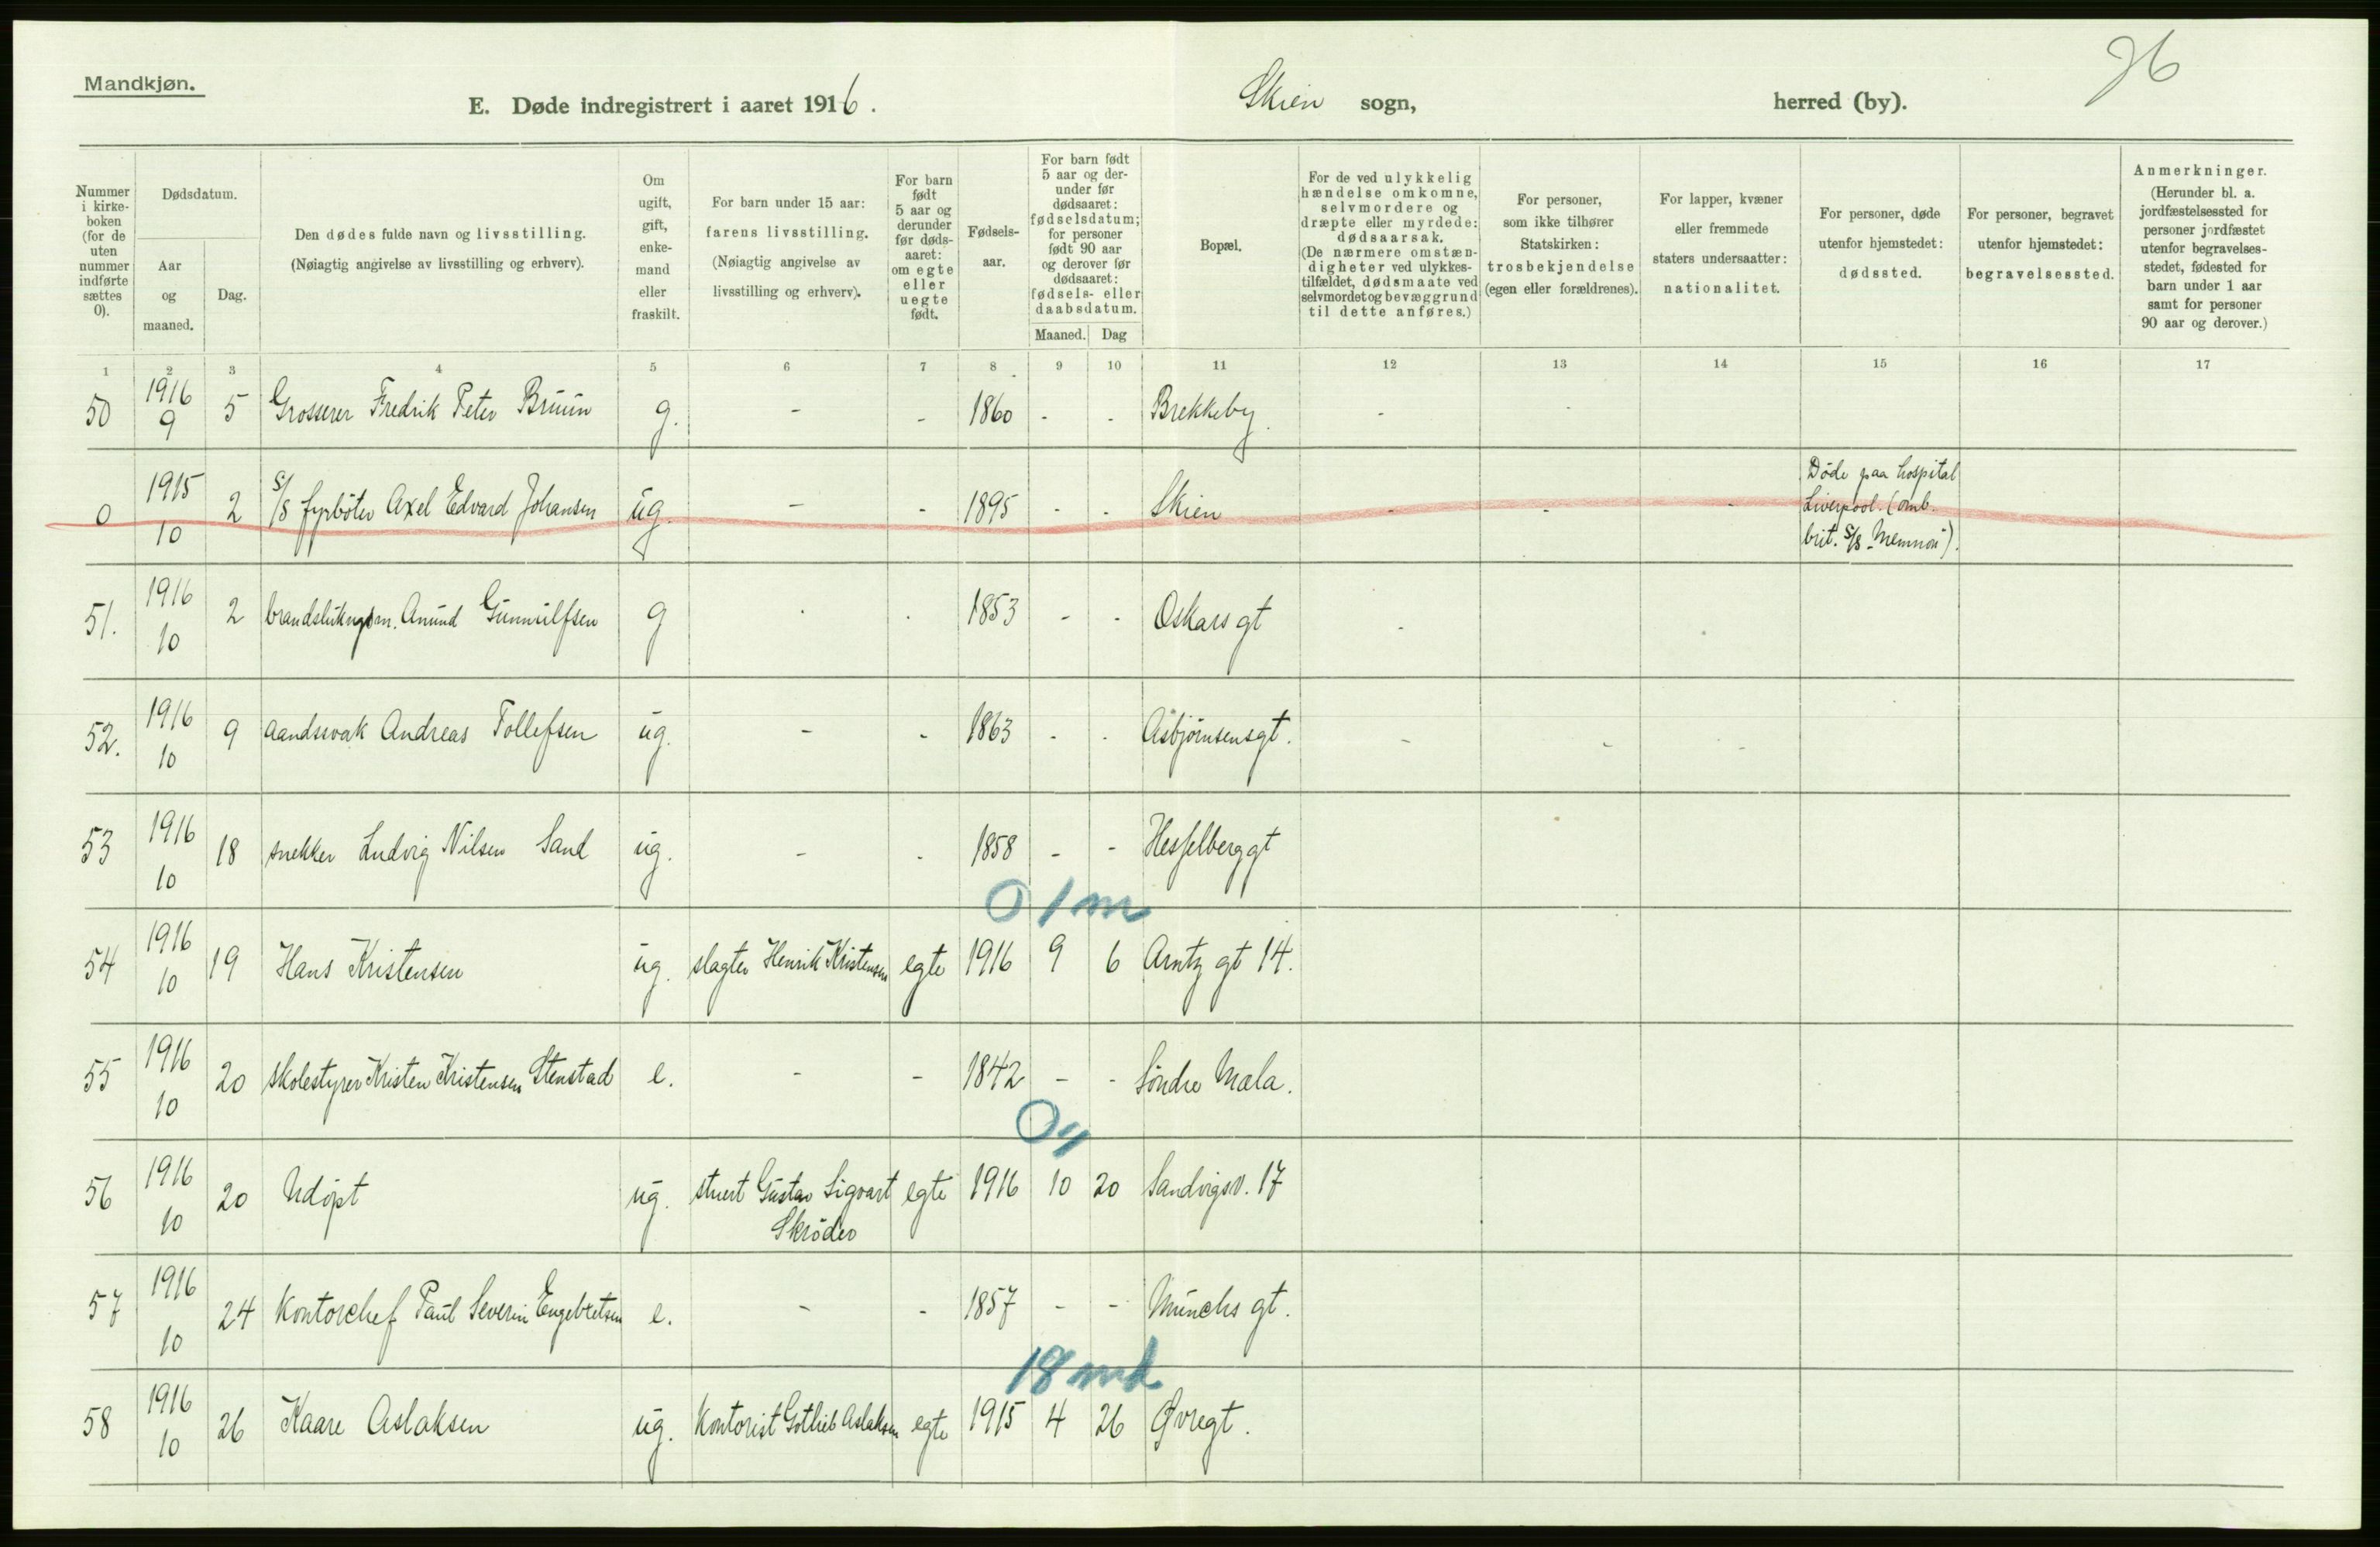 Mandkjøn.
26
E. Døde indregistrert i aaret 1916. Skien sogn, herred (by).
Nummer i kirke- boken (for de uten nummer indførte sættes 0).
Dødsdatum.
Aar og maaned.
Dag.
Den dødes fulde navn og livsstilling.
(Nøiagtig angivelse av livsstilling og erhverv).
Om ugift, gift, enke- mand eller fraskilt.
For barn under 15 aar: farens livsstilling.
(Nøiagtig angivelse av livsstilling og erhverv).
For barn født 5 aar og derunder før døds- aaret: om egte eller uegte født.
Fødsels- aar.
For barn født 5 aar og der- under før dødsaaret: fødselsdatum; for personer født 90 aar og derover før dødsaaret: fødsels- eller daabsdatum.
Maaned. Dag
Bopæl.
For de ved ulykkelig hændelse omkomne, selvmordere og dræpte eller myrdede: dødsaarsak.
(De nærmere omstæn- digheter ved ulykkes- tilfældet, dødsmaate ved selvmordet og bevæggrund til dette anføres.)
For personer, som ikke tilhører Statskirken: trosbekjendelse (egen eller forældrenes).
For lapper, kvæner eller fremmede staters undersaatter: nationalitet.
For personer, døde utenfor hjemstedet: dødssted.
For personer, begravet utenfor hjemstedet: begravelsessted.
Anmerkninger.
(Herunder bl. a. jordfæstelsessted for personer jordfæstet utenfor begravelses- stedet, fødested for barn under 1 aar samt for personer 90 aar og derover.)
1 2 3 4 5 6 7 8 9 10 11 12 13 14 15 16 17
50 1916 9 5 Grosserer Fredrik Peter Bruun g. - - 1860 - - Brekkeby. - -
0 1915 10 2 S/S fyrbøter Axel Edvard Johansen ug. - - 1895 - - Skien - - - Døde paa hospital
Liverpool. (omb.
brit. S/S "Memnon").
51. 1916 10 2 brandslukngsm. Anund Gunnulfsen g - - 1853 - - Oskars gt -
52. 1916 10 9 aandssvak Andreas Tollefsen ug. - - 1863 - - Asbjørnsensgt. - - -
53 1916 10 18 snekker Ludvig Nilsen Sand ug. - - 1858 - - Hesselberggt
0 1 m
54 1916 10 19 Hans Kristensen ug. slagter Henrik Kristensen egte 1916 9 6 Arntz gt 14.
55 1916 10 20 skolestyrer Kristen Kristensen Stenstad e. - - 1842 - - Søndre Mæla.
0
56 1916 10 20 Udøpt ug. stuert Gustav Sigvart egte 1916 10 20 Sandvigsv. 17
Skrøder
57 1916 10 24 Kontorchef Paul Severin Engebretsen e. - - 1857 - - Munchs gt.
18 md
58 1916 10 26 Kaare Aslaksen ug. Kontorist Gotlieb Aslaksen egte 1915 4 26 Øvregt.